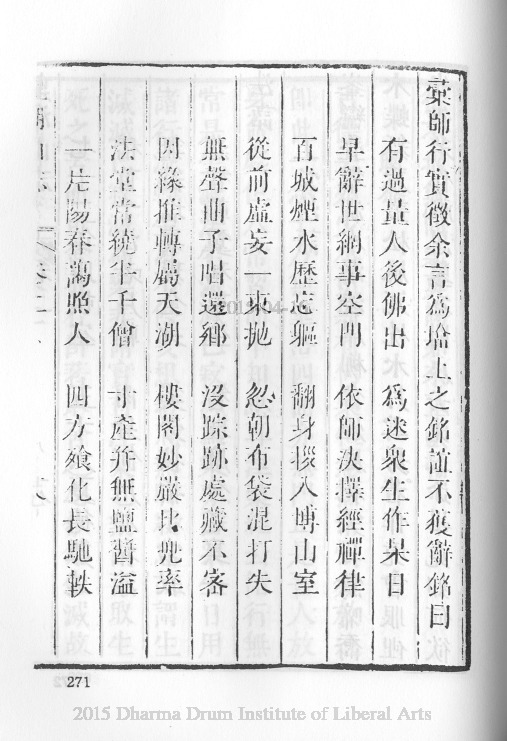 彙師行實徵余言為塔上之銘誼不獲辭銘曰
有過量人後佛出 為迷衆生作杲日
早辭世網事空門 依師決擇經禪律
百城煙水歷忘軀 翻身拶入博山室
從前虛妄一束拋 忽朝布袋混打失
無聲曲子唱還鄉 沒踪跡處藏不密
因緣推轉屬天湖 樓閣妙嚴比兜率
法堂常繞半千僧 寸產幷無鹽醬溢
一片陽春藹煦人 四方飱化長馳軼
271
2015 Dharma Drum Institute of Liberal Arts